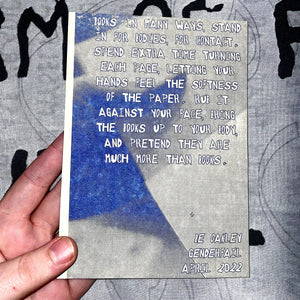 BOOKS IN MANY WAYS, STAND
IN FOR BODIES, FOR CONTACT.
SPEND EXTRA TIME TURNING
EACH PAGE, LETTING YOUR
HANDS FEEL THE SOFTNESS
OF THE PAPER. RUB IT
AGAINST YOUR FACE, BRING
THE BOOKS UP TO YOUR BODY,
AND PRETEND THEY ARE
MUCH MORE THAN BOOKS.
IE OAKLEY
GENDERFAIL
APRIL 2022